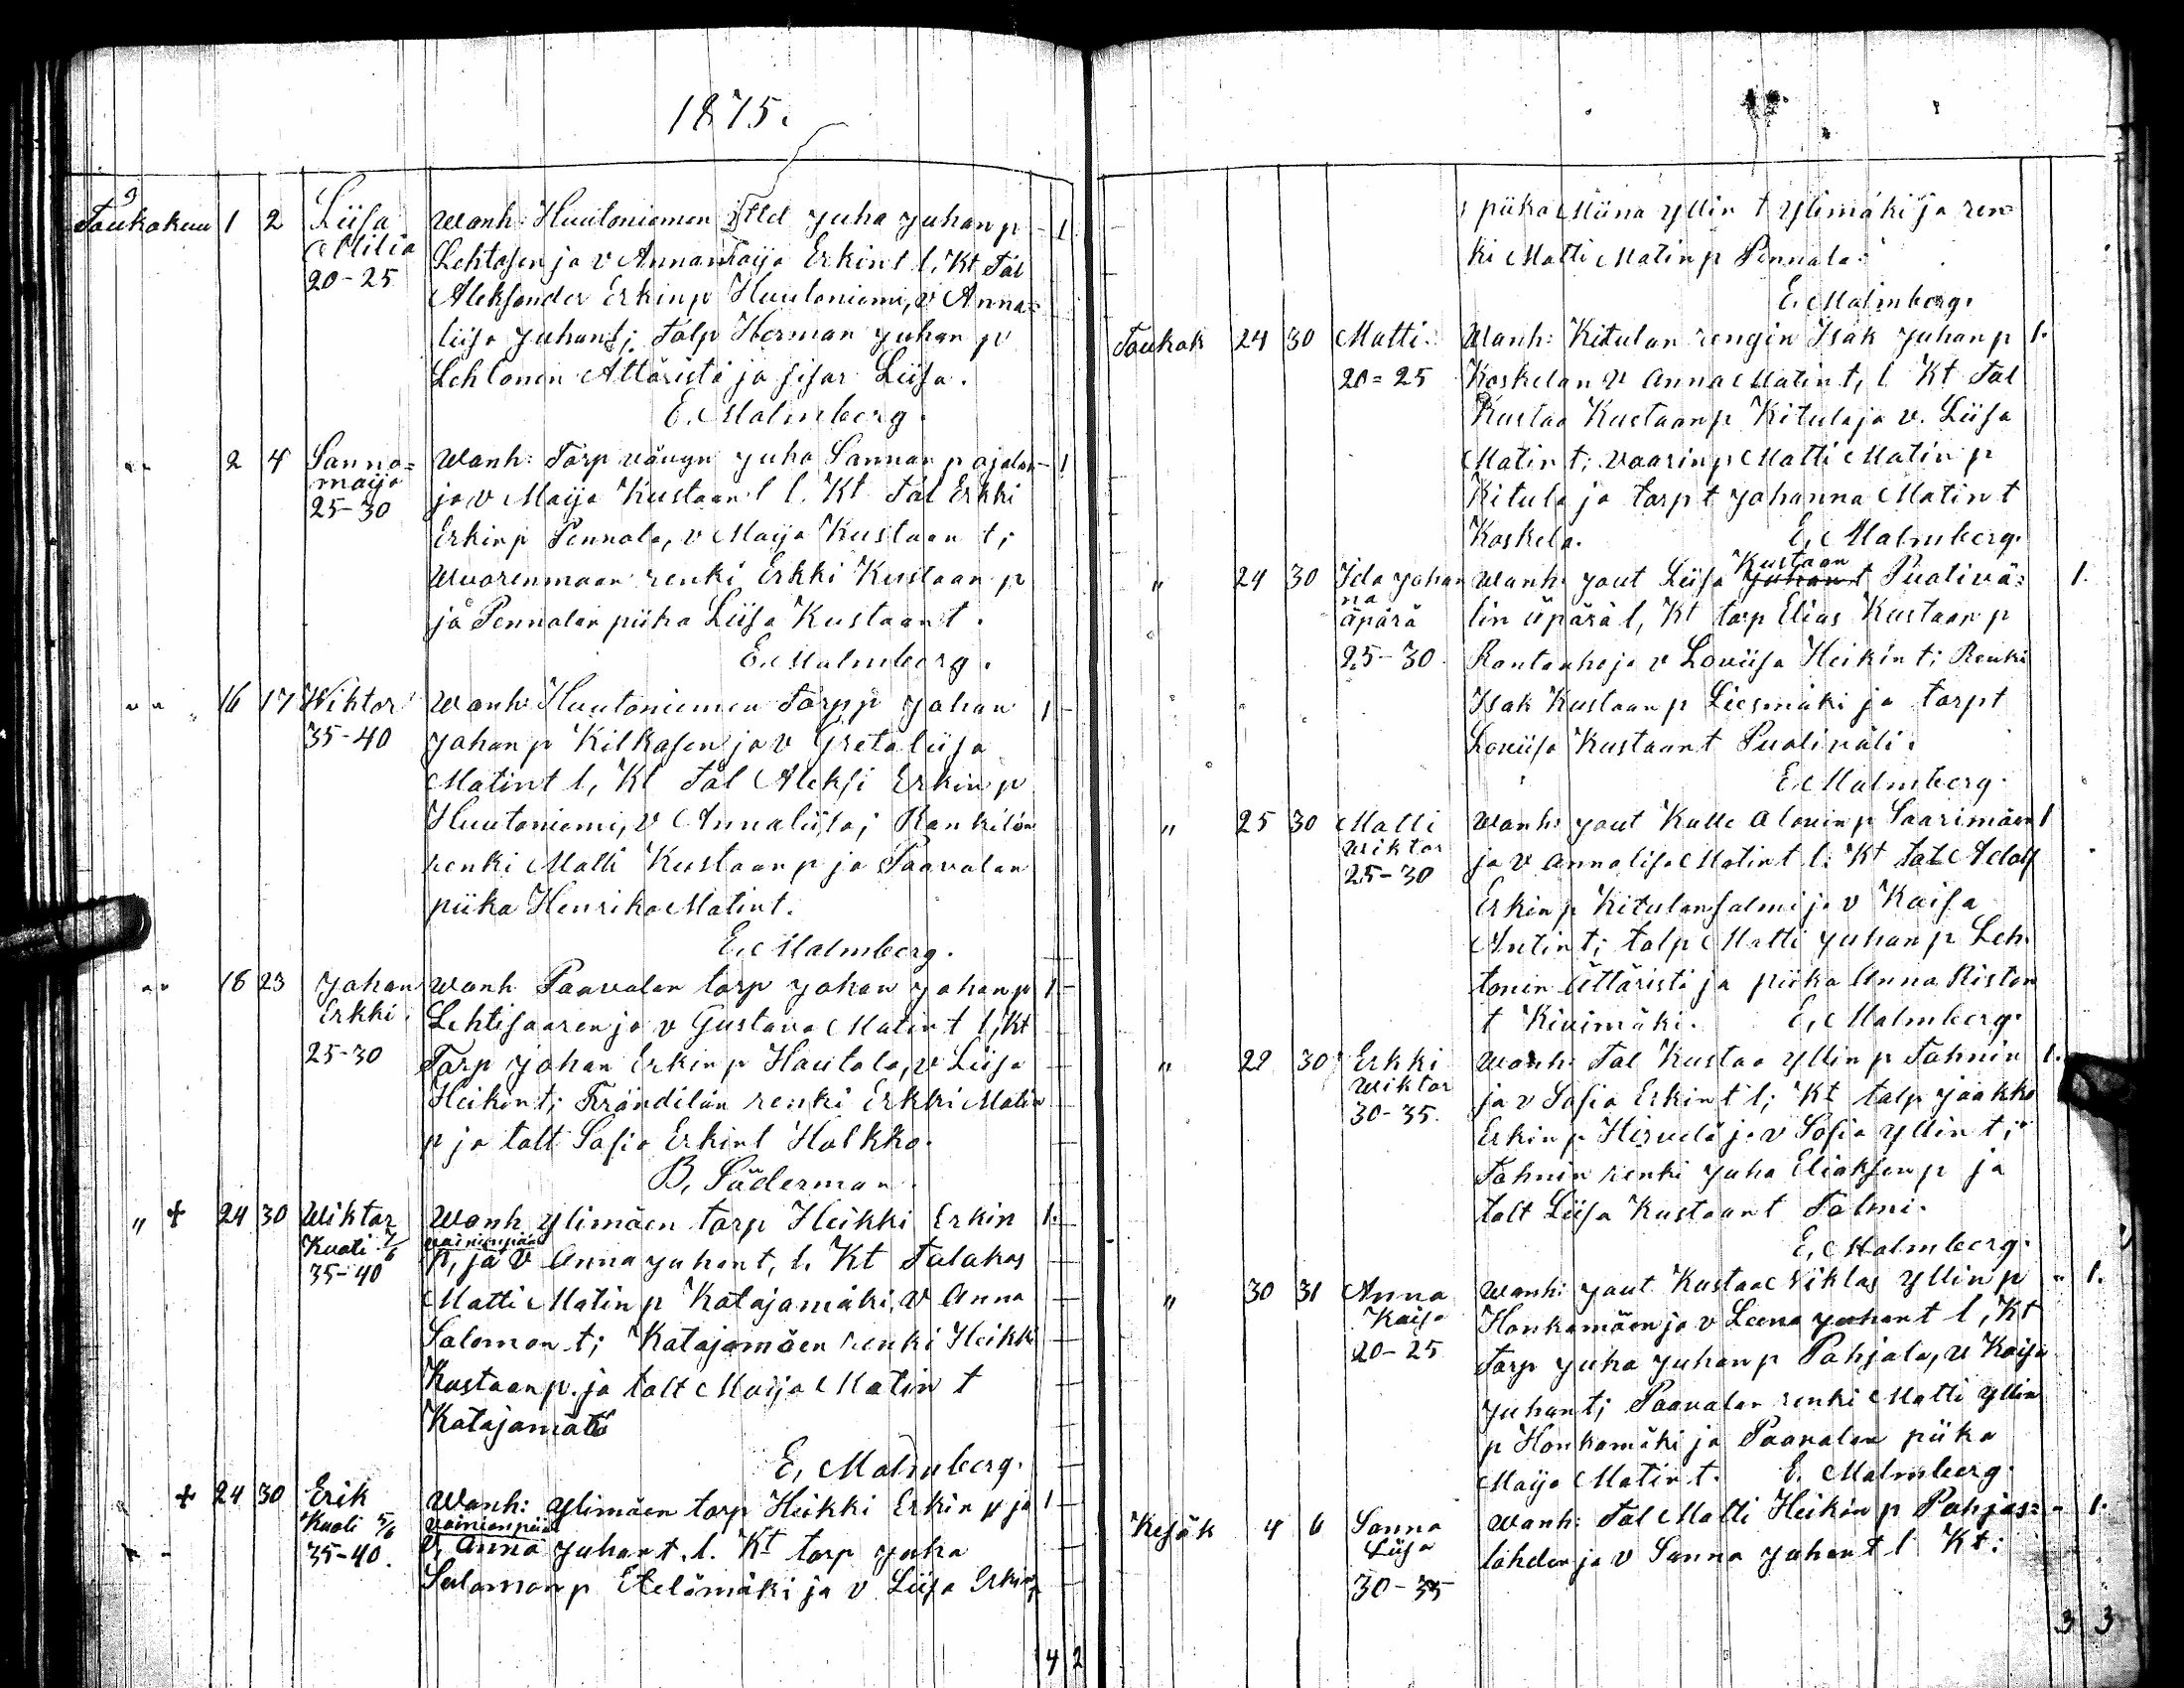 1875.
Toukokuu 1 2 Liisa Wanh: Huutoniemen Juha Juhan p 1
Milia Lehtosen ja v Annamaija Erkin t l. Kt Tal
20-25 Aleksander Erkin p Huutoniemi, v Anna=
liisa Juhant; talp Herman Juhan p
Lehtonen Ättäristä ja sisar Liisa.
E. Malmberg.
" 2 4 Sanna= Wanh: Torp vävyn Juha Sannan p ajalan 1
maija ja v Maija Kustaan t l. Kt Tal Erkki
25-30 Erkin p Pennala, v Maija Kustaan t;
Wuorenmaan renki Erkki Kustaan p
ja Pennalan piika Liisa Kustaant.
E. Malmberg.
" 16 17 Wiktor Wanh: Huutoniemen Torpp Johan 1
35-40 Johan p Kilkasen ja v Gretaliisa
Matint l, Kt Tal Aleksi Erkin p
Huutoniemi, v Annaliisa; Rankilan
renki Matti Kustaan p ja Paavolan
piika Henrika Matint.
E. Malmberg.
" 18 23 Johan Wanh Paavolan torp Johan Johan p 1
Erkki. Lehtisaaren ja v Gustava Matin t l, Kt
25-30 Torp Johan Erkin p Hautala, v Liisa
Heikin t; Frändilän renki Erkki Matin
p ja talt Sofia Erkint Halkko.
B. Söderman.
" + 24 30 Wiktor Wanh Ylimäen torp Heikki Erkin 1.
Kuoli 7/6 vainionpää
35-40 p, ja v Anna Juhant, l. Kt Talakas
Matti Matin p Katajamäki, v Anna
Salomon t; Katajamäen renki Heikki
Kustaan p. ja talt Maija Matin t
Katajamäki
E, Malmberg.
+ 24 30 Erik Wanh: Ylimäen torp Heikki Erkin p ja 1
Kuoli 5/6 vainionpää
35-40. v, Anna Juhant. l. Kt torp Juha
Salomon p Etelämäki ja v Liisa Erkin
4 2
piika Miina Yllin t Ylimäki ja ren=
ki Matti Matin p Pennala.
E. Malmberg.
Toukok 24 30 Matti. Wanh: Kitulan rengin Isak Juhan p 1.
20=25 Koskelan v Anna Matin t, l Kt Tal
Kustaa Kustaan p Kitula ja v. Liisa
Matin t; vaarin p Matti Matin p
Kitula ja torp t Johanna Matin t
Koskela. E. Malmberg.
Kustaan
" 24 30 Ida Johan Wanh: Jout Liisa Juhan t Puolivä= 1.
na
äpärä lin äpärä l, Kt torp Elias Kustaan p
25-30. Rantanhe ja v Loviisa Heikin t; Renki
Isak Kustaan p Liesmäki ja torpt
Loviisa Kustaant Puoliväli.
E. Malmberg.
" 25 30 Matti Wanh: Jout Kalle Alouin p Saarimäen 1
Wiktor ja v Annaliisa Matin t l. Kt tal Adolf
25-30 Erkin p Kitulansalmi ja v Kaisa
Antin t; talp Matti Juhan p Leh
tonin Ättäristä ja piika Anna Riston
t Kivimäki. E, Malmberg.
" 22 30 Erkki Wanh: Tal Kustaa Yllin p Tahnin 1.
Wiktor ja v Sofia Erkin t l; Kt talp Jaakko
30-35. Erkin p Hirvelä ja v Sofia Yllin t;
Tahnin renki Juha Eliaksen p ja
talt Liisa Kustaan t Talmi.
E, Malmberg.
" 30 31 Anna Wanh: Jout Kustaa Niklas Yllin p " 1.
Kaisa Honkamäen ja v Leena Juhan t l, Kt
20-25 Torp Juha Juhan p Pohjala, v Kaisa
Juhan t; Paavolan renki Matti Yllin
p Honkamäki ja Paavolan piika
Maija Matin t. E. Malmberg.
Kesäk 4 6 Sanna Wanh: Tal Matti Heikin p Pohjas= " 1.
Liisa lähden ja v Sanna Juhan t l Kt:
30-35
3 3